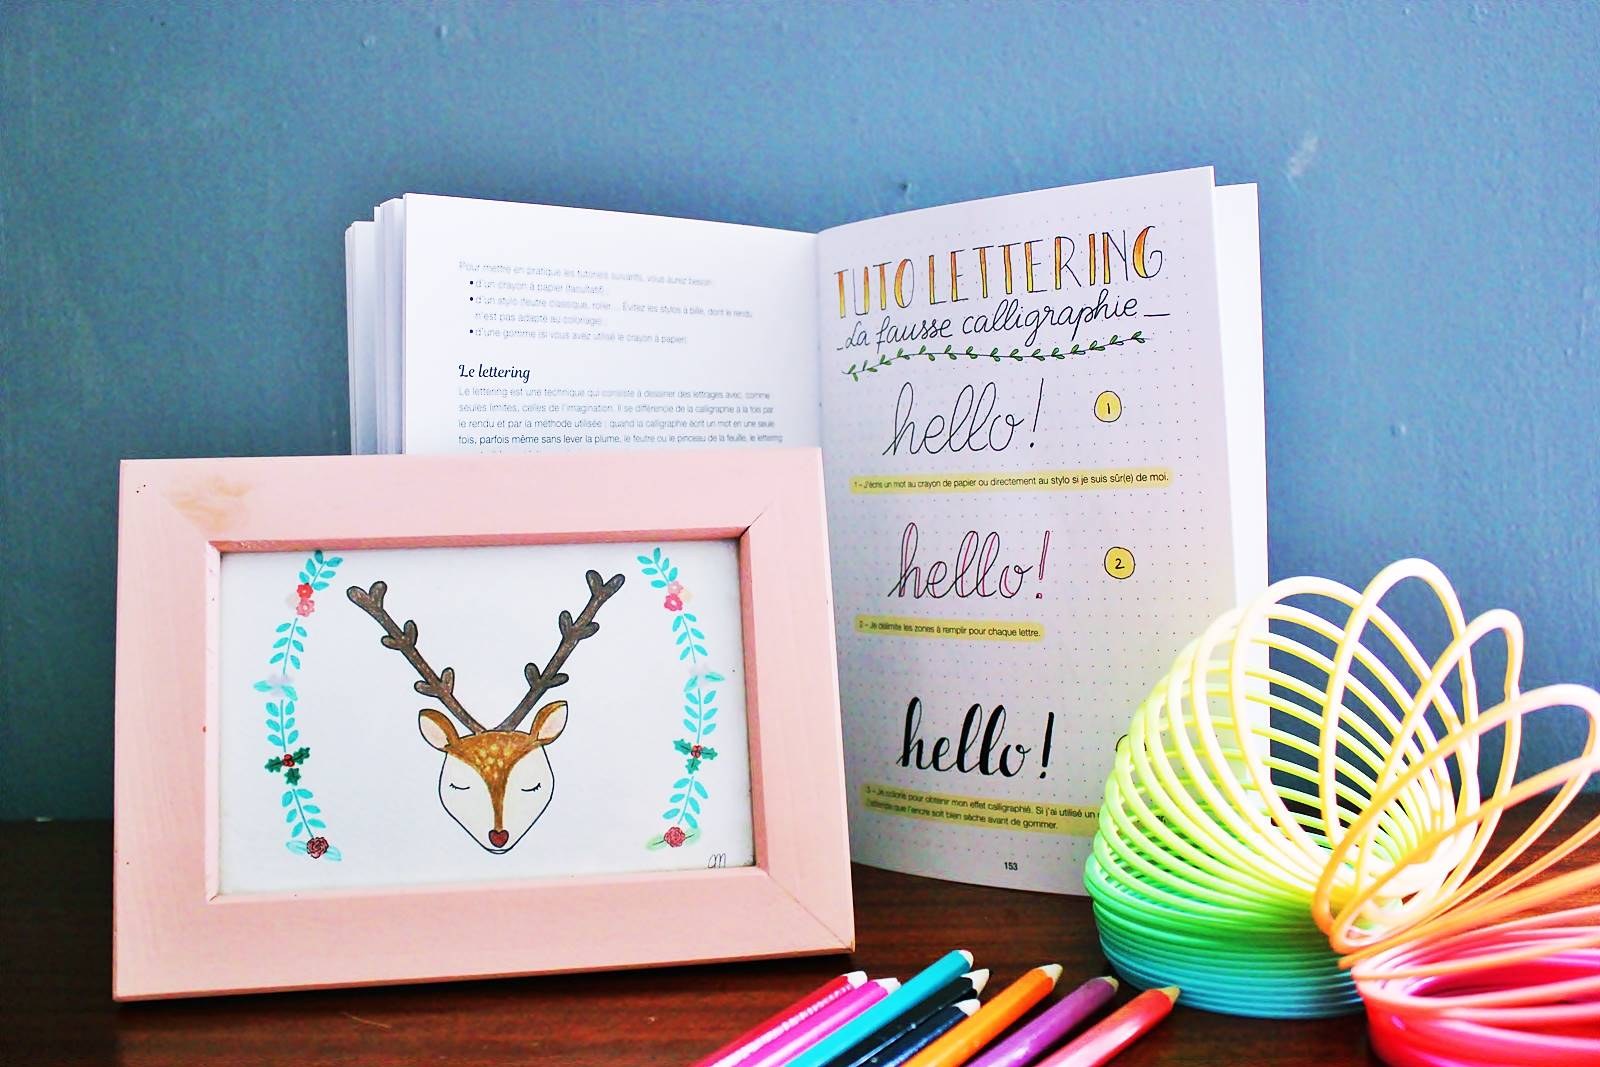 Pour mettre en pratique les tutoriels suivants, vous aurez besoin :
• d'un crayon à papier (facultatif) ;
• d'un stylo (feutre classique, roller... Évitez les stylos à bille, dont le rendu
n'est pas adapté au coloriage) ;
• d'une gomme (si vous avez utilisé le crayon à papier).
Le lettering
Le lettering est une technique qui consiste à dessiner des lettrages avec, comme
seules limites, celles de l'imagination. Il se différencie de la calligraphie à la fois par
le rendu et par la méthode utilisée : quand la calligraphie écrit un mot en une seule
fois, parfois même sans lever la plume, le feutre ou le pinceau de la feuille, le lettering
TUTO LETTERING
_La fausse calligraphie_
hello! 1
1 – J'écris un mot au crayon de papier ou directement au stylo si je suis sûr(e) de moi.
hello! 2
2 – Je délimite les zones à remplir pour chaque lettre.
hello!
3 – Je colorie pour obtenir mon effet calligraphié. Si j'ai utilisé un
j'attends que l'encre soit bien sèche avant de gommer.
153